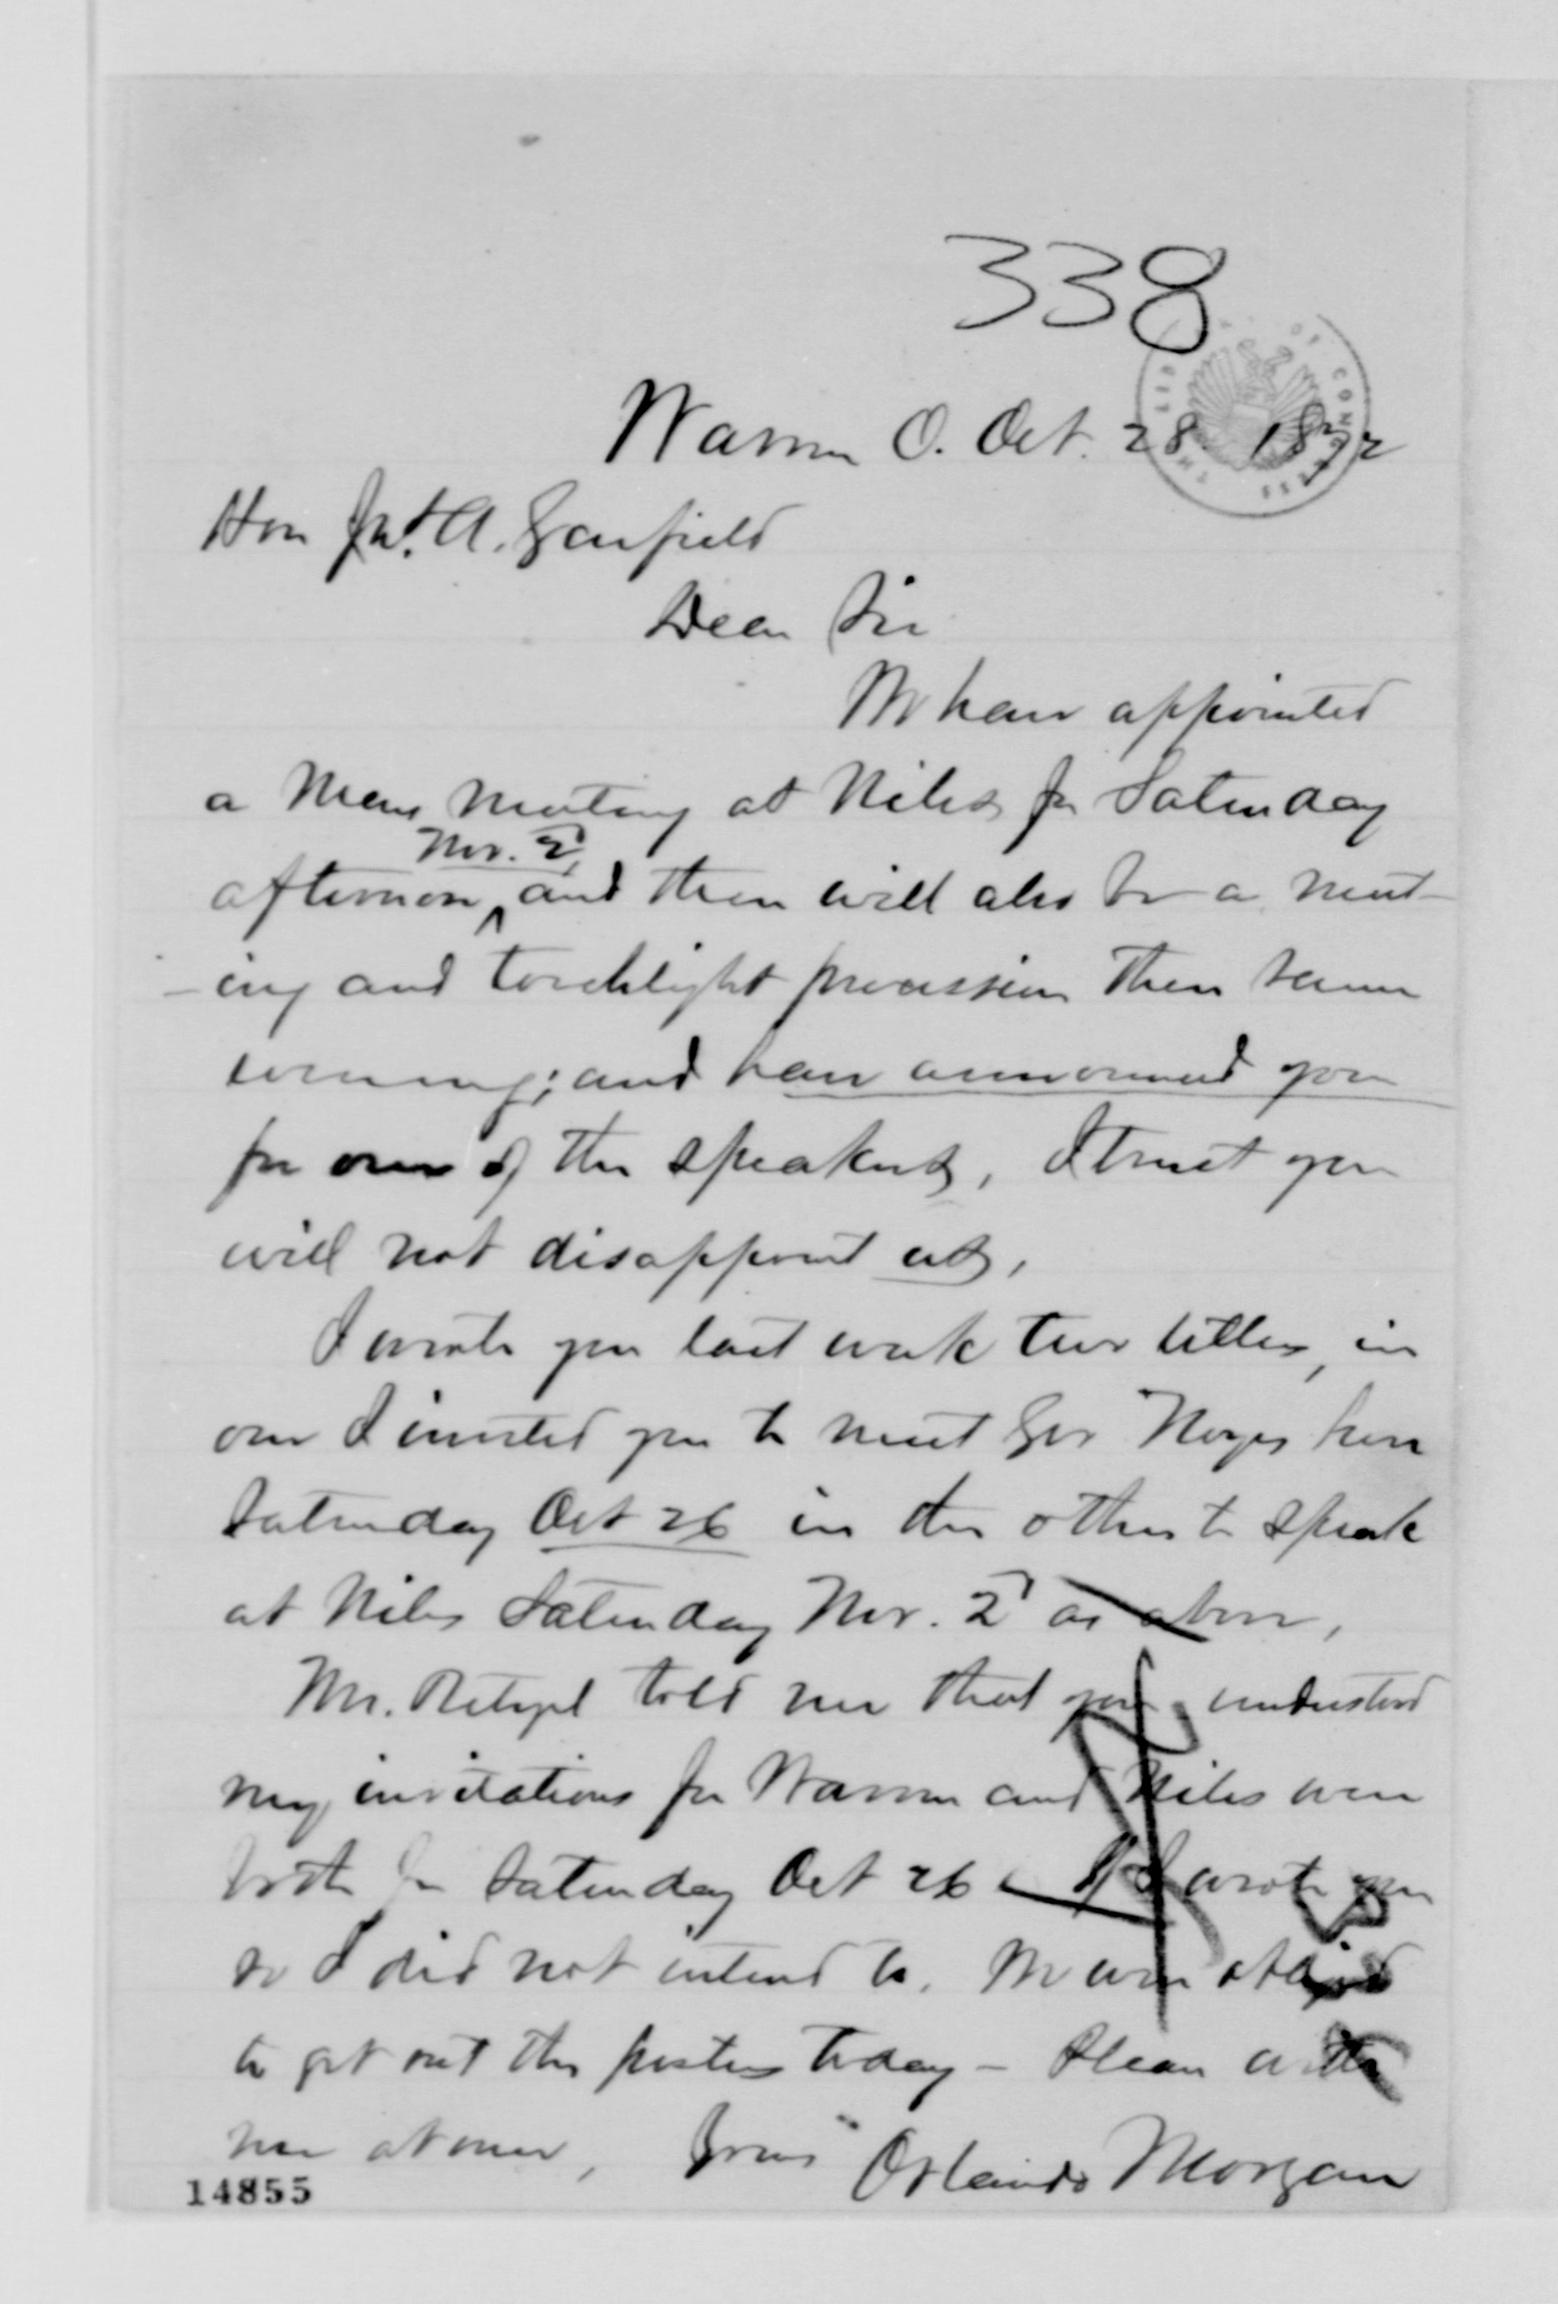 338
Warren O. Oct. 28. 1872
Hon Jas. A. Garfield
Dear Sir
We have appointed
a Mass Meeting at Niles for Saturday
Nov. 2d
afternoon, and there will also be a meet-
-ing and torchlight procession there same
evening; and have announced you
for one of the speakers, I trust you
will not disappoint us,
I wrote you last week two letters, in
one I invited you to meet Gov Noyes here
Saturday Oct 26 in the other to speak
at Niles Saturday Nov. 2d as above,
Mr. told me that you understood
my invitations for Warren and Niles were
both for Saturday Oct 26 - If I wrote you
so I did not intend to. We were obliged
to get out the posters today - Please write
me at once, Yours Orlando Morgan
14855